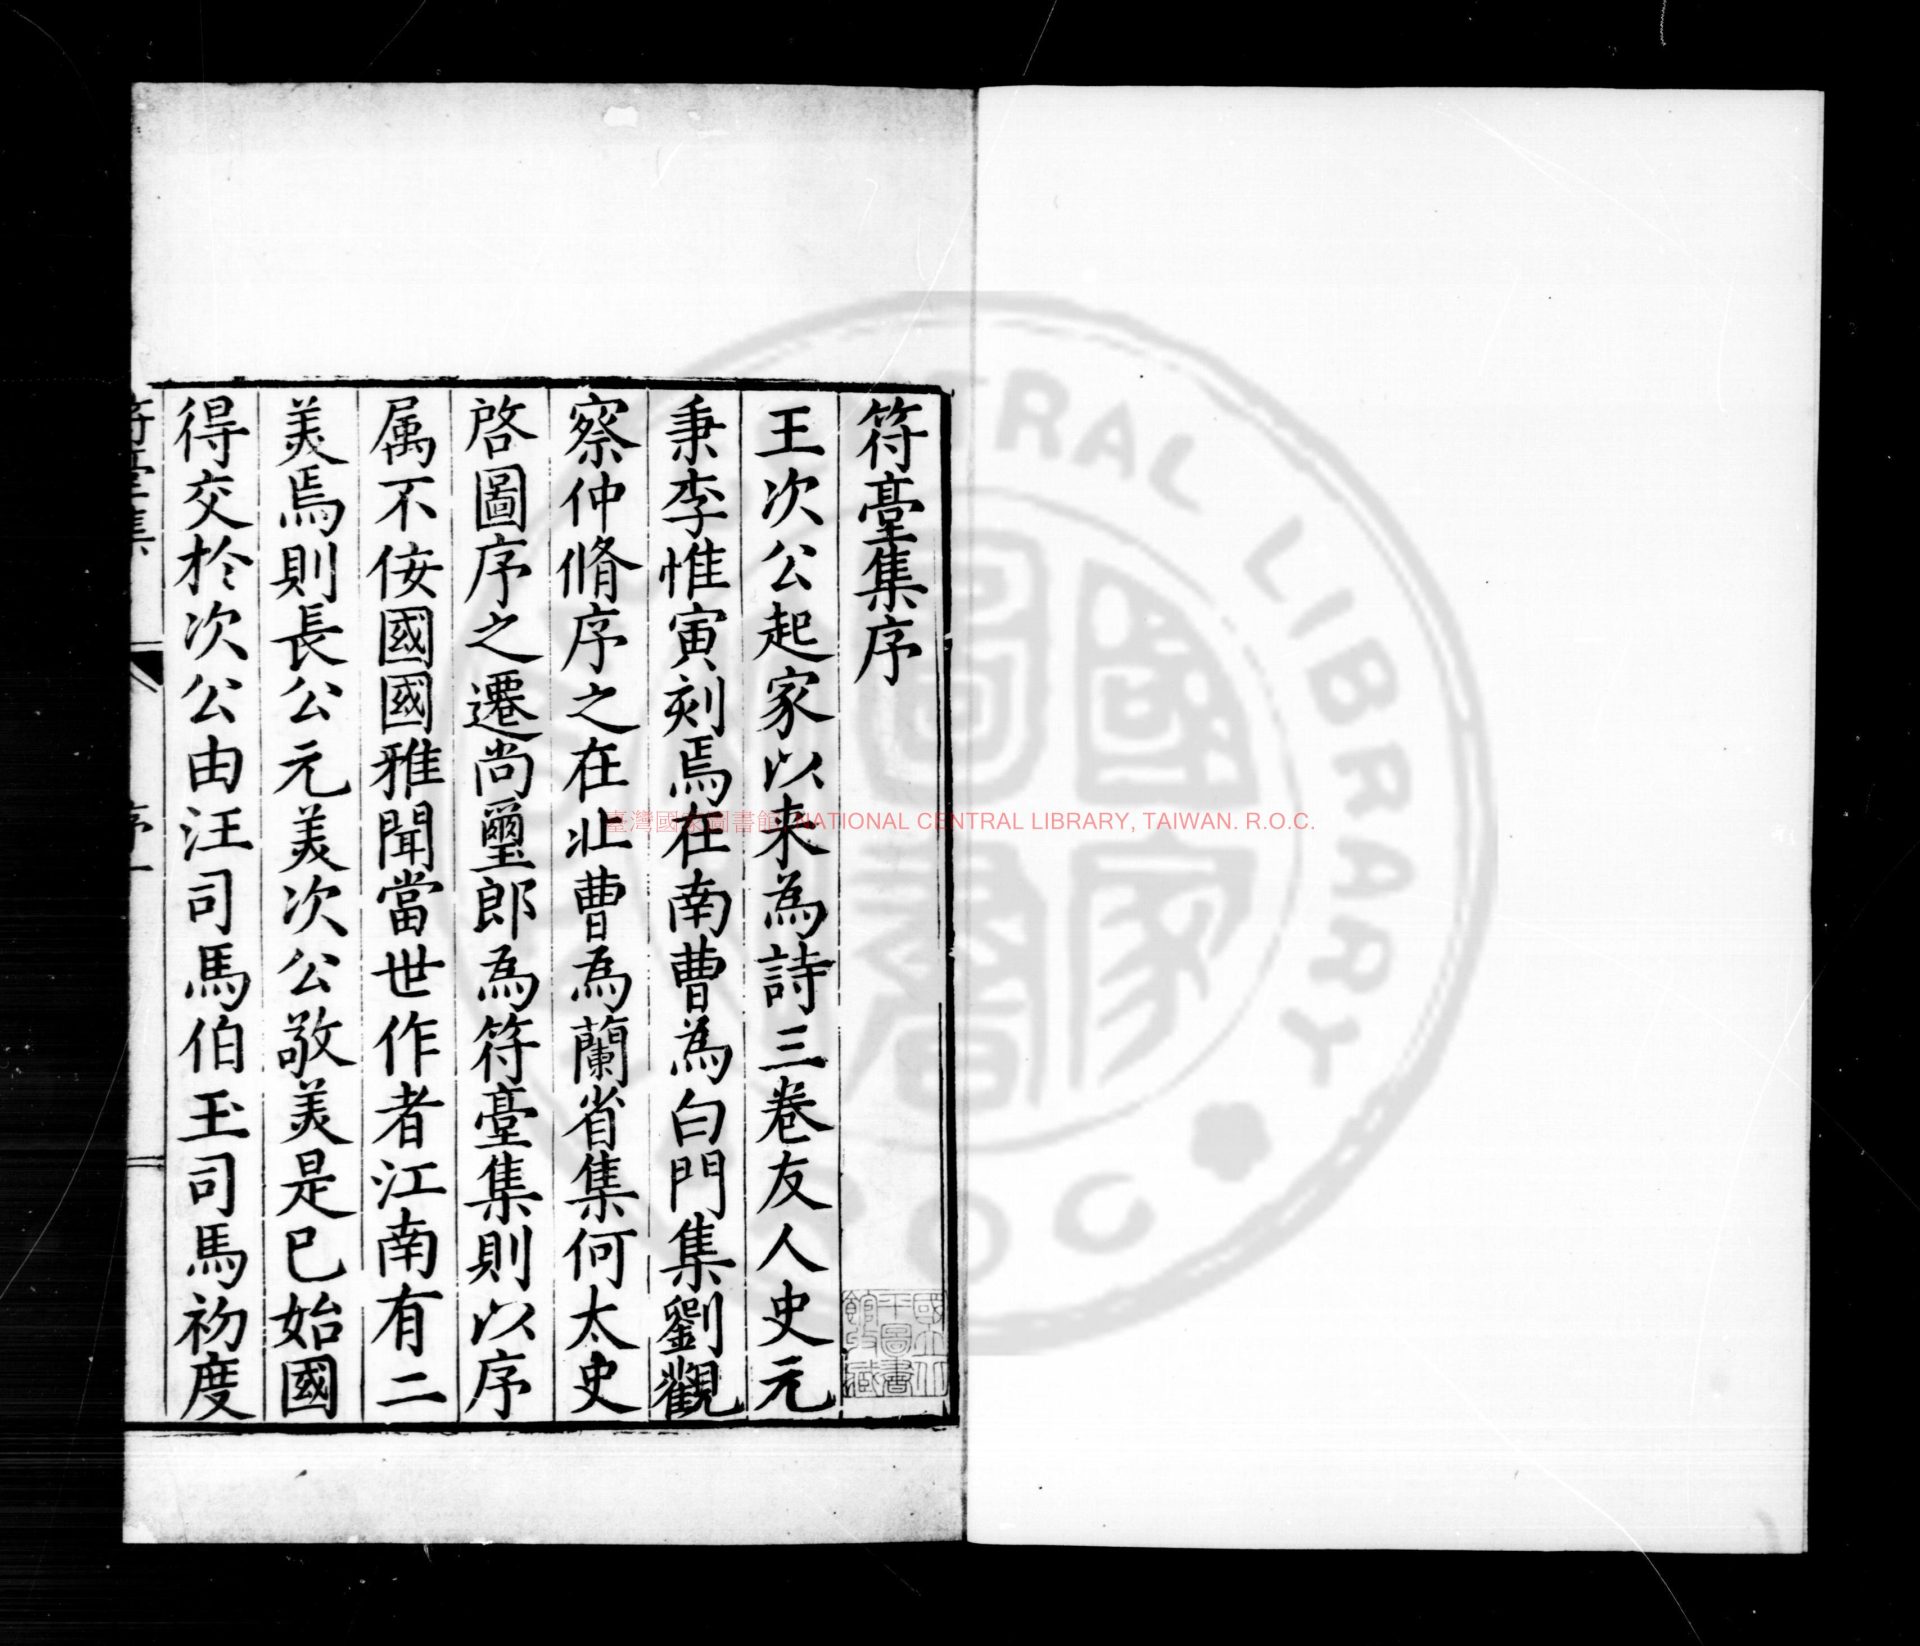 符臺集序
王次公起家以来為詩三卷友人史元
秉李惟寅刻焉在南曹為白門集劉觀
察仲脩序之在北曹為蘭省集何太史
啓圖序之遷尚璽郎為符臺集則以序
属不佞國國雅聞當世作者江南有二
美焉則長公元美次公敬美是已始國
得交於次公由汪司馬伯玉司馬初度
符臺集 序 一
臺灣國家圖書館, NATIONAL CENTRAL LIBRARY, TAIWAN. R.O.C.
國立北
平圖書
館收藏
國家圖書
CENTRAL LIBRARY R.O.C.